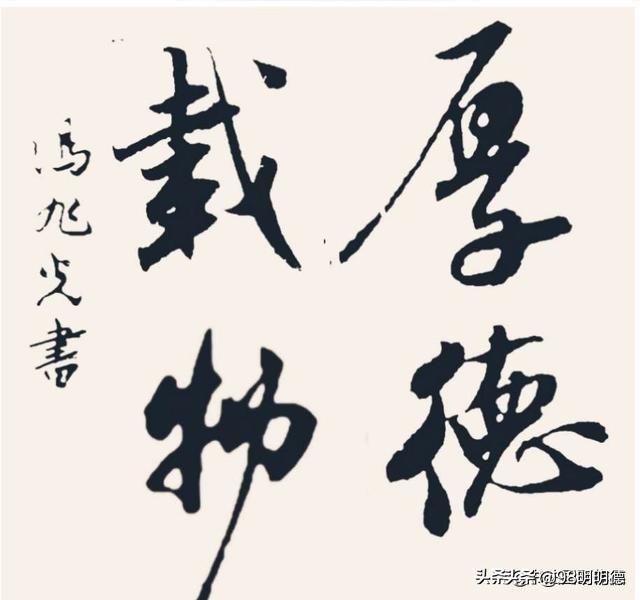 厚德
載物
馮旭光書
头条 明明德